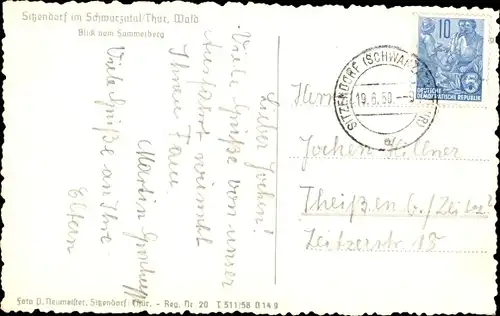 Sitzendorf im Schwarzatal/Thür. Wald
Blick vom Sommerberg
Lieber Jochen!
Viele Grüße von unser
Ausfahrt nimmt
Ihnen
Martin
Viele Grüße an Ihre
Eltern
10
DEUTSCHE
DEMOKRATISCHE REPUBLIK
SITZENDORF (SCHWARZ
19.6.60.
Herrn
Jochen
Theißen b/Zeitz
Zeitzerstr. 15
Foto D. Neumeister, Sitzendorf/Thür. - Reg. Nr 20 T 511/58 D 14 9